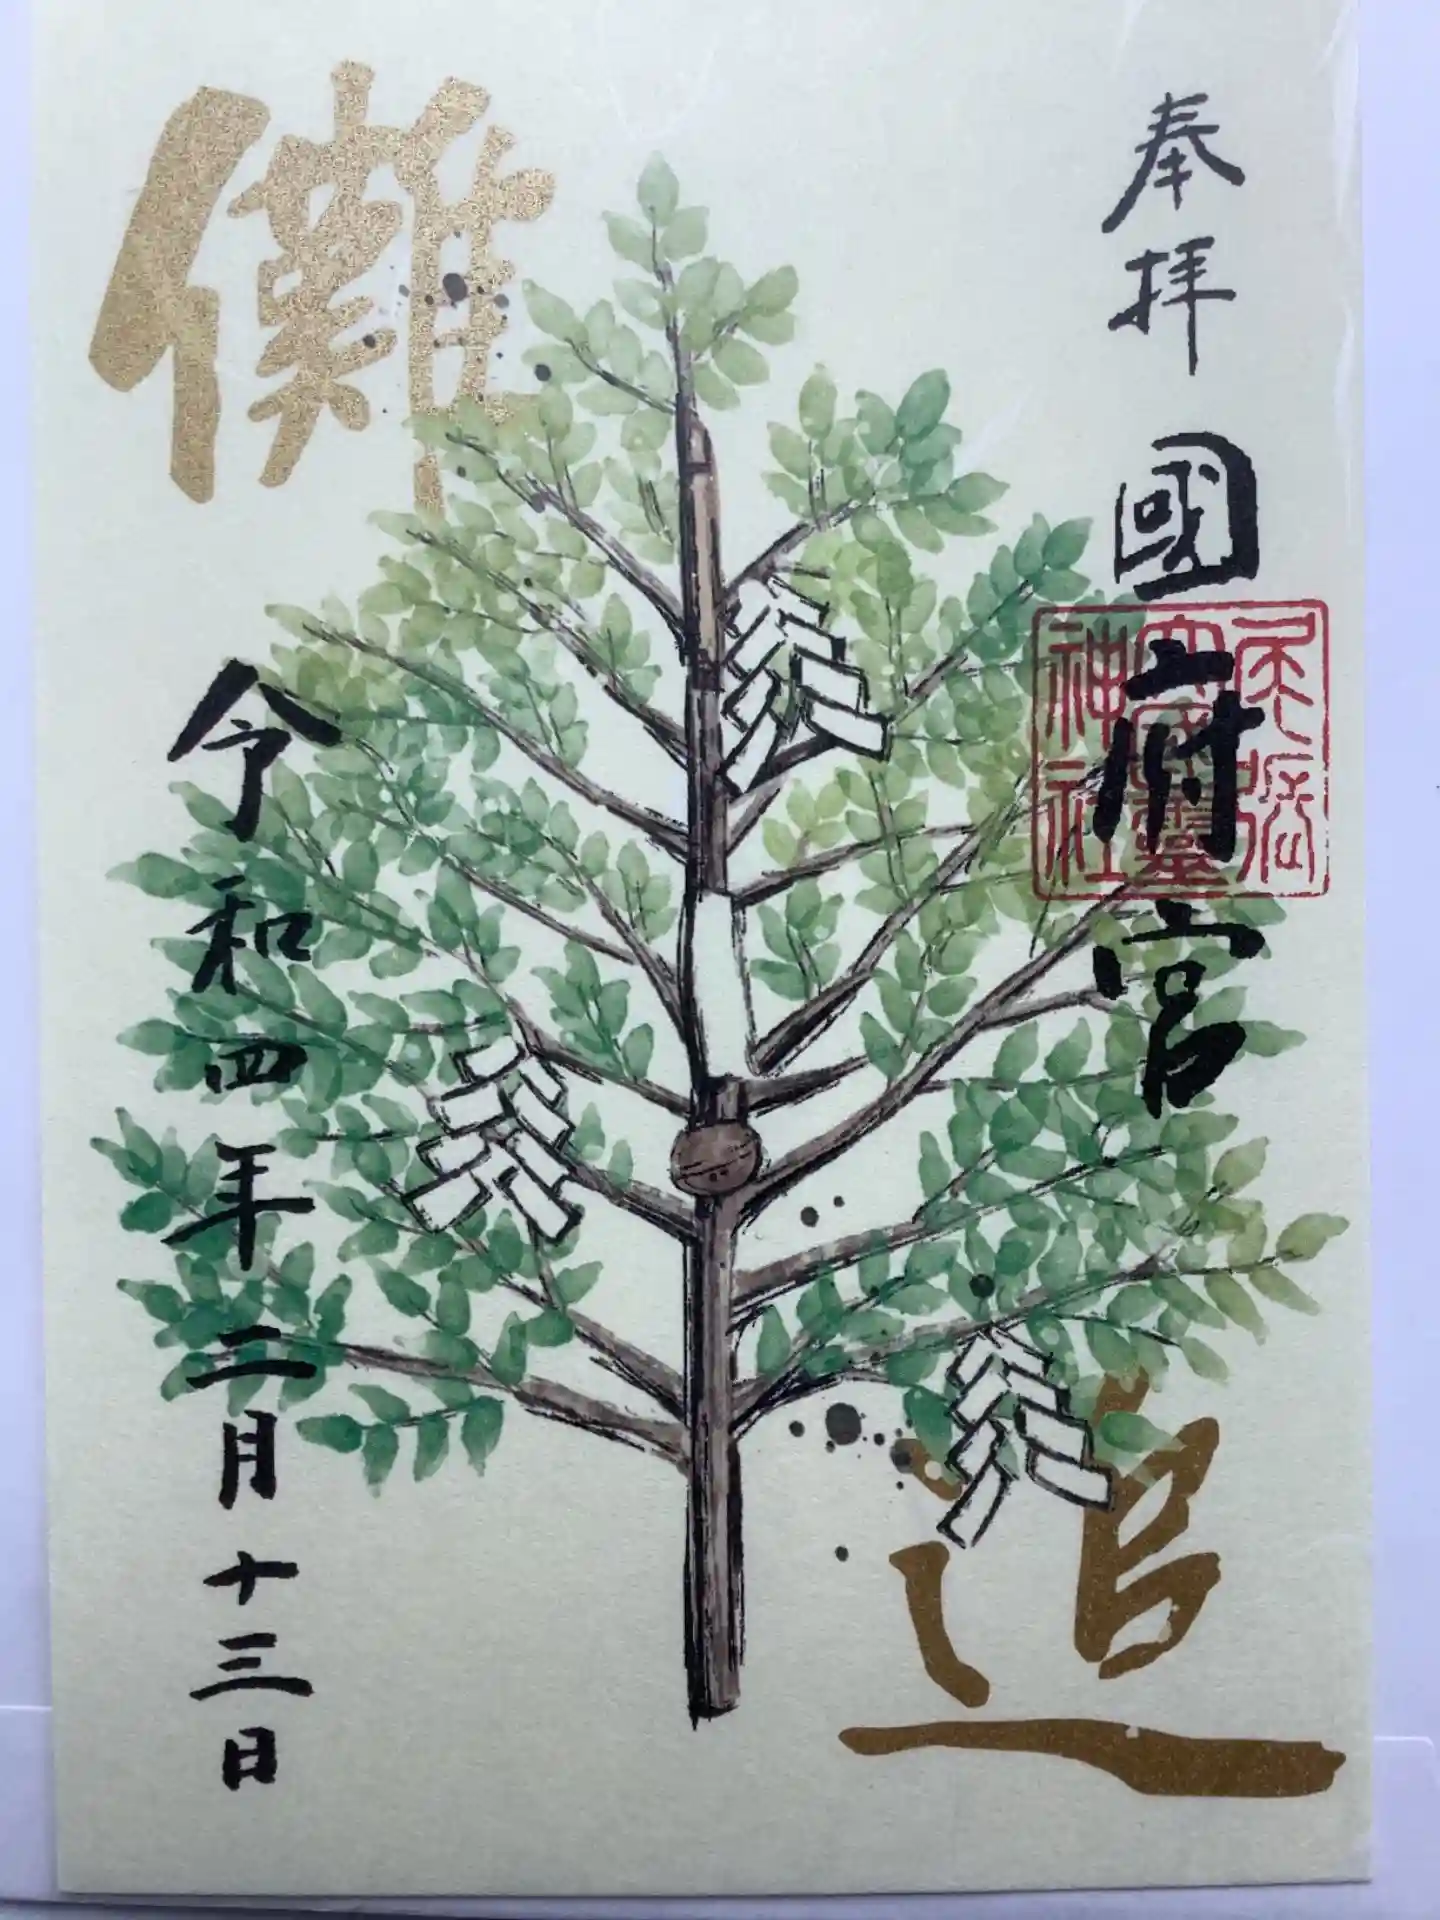 奉拝
國府宮
尾張
大國靈
神社
追
儺
令和四年二月十三日